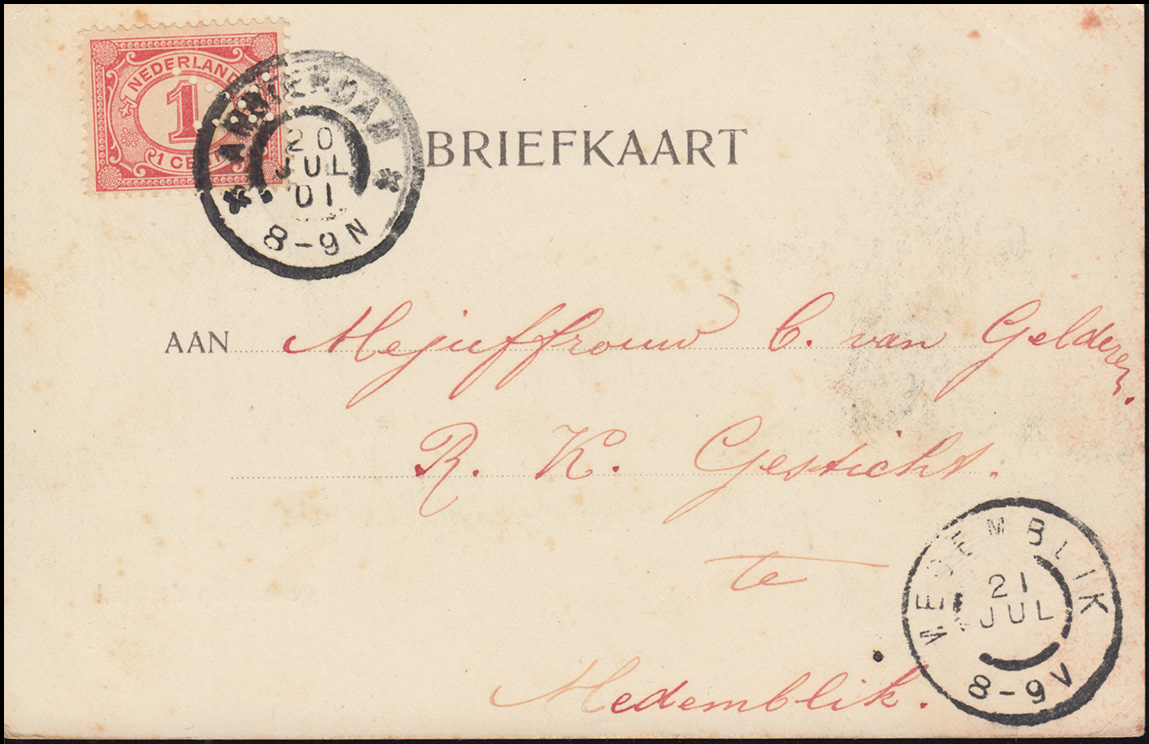 NEDERLAND
1
1 CENT
AMSTERDAM
20
JUL
01
8-9N
BRIEFKAART
AAN Mejuffrouw C. van Gelderen.
R. K. Gesticht.
te
Medemblik.
MEDEMBLIK
21
JUL
8-9V